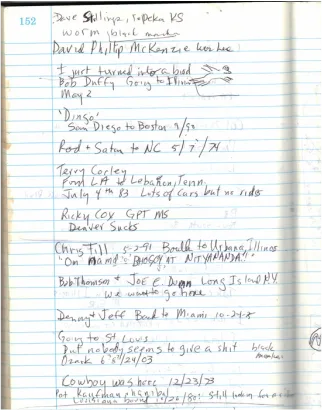 152
Dave Stillings, Topeka KS
worm black
David Phillip McKenzie
I just turned into a bird
Bob Duffy Going to Illinois
May 2
'Dingo'
San Diego to Boston 9/99
Rod + Satan to NC 5/7/74
Terry Corley
From LA to Lebanon, Tenn,
July 4th 83 Lots of Cars but no rides
Ricky Cox GPT MS
Denver Sucks
Chris Till 5-2-91 Boulder to Urbana, Illinois
"On NITYANANDA"
Bob Thomson + Joe E. Dunn Long Island N.Y.
we want to go home
Denny + Jeff Bound to Miami 10-24-8
Going to St. Louis
But nobody seems to give a shit black
Ozark 6
Cowboy was here 12/23/73
Pat Kaufman
Louisiana bound still looking for